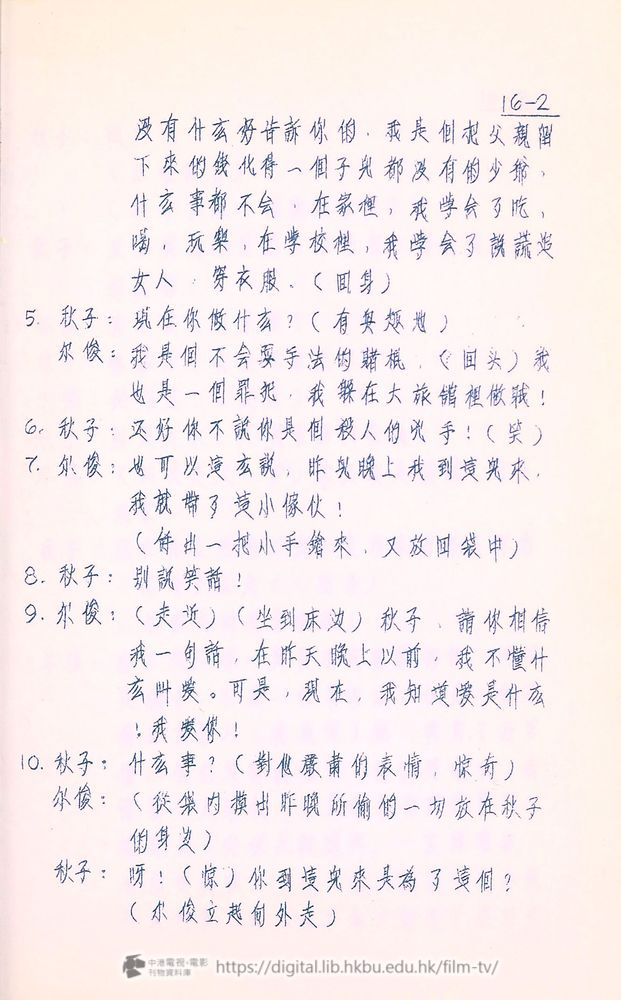 16-2
没有什么好告訴你的，我是個把父親留
下來的錢化得一個子兒都没有的少爺，
什么事都不会，在家裡，我學会了吃、
喝、玩樂，在學校裡，我學会了說謊追
女人、穿衣服。（回身）
5. 秋子：現在你做什么？（有興趣地）
尔俊：我是個不会耍手法的賭棍，（回头）我
也是一個罪犯，我躲在大旅館裡做賊！
6. 秋子：还好你不說你是個殺人的兇手！（笑）
7. 尔俊：也可以這么説，昨兒晚上我到這兒來，
我就帶了這小傢伙！
（ 出一把小手鎗來，又放回袋中）
8. 秋子：别説笑話！
9. 尔俊：（走近）（坐到床边）秋子，請你相信
我一句話，在昨天晚上以前，我不懂什
么叫愛。可是，現在，我知道愛是什么
，我愛你！
10. 秋子：什么事？（對他嚴肅的表情，惊奇）
尔俊：（從袋内摸出昨晚所偷的一切放在秋子
的身边）
秋子：呀！（惊）你到這兒來是為了這個？
（尔俊立起向外走）
中港電視·電影
刊物資料庫
https://digital.lib.hkbu.edu.hk/film-tv/